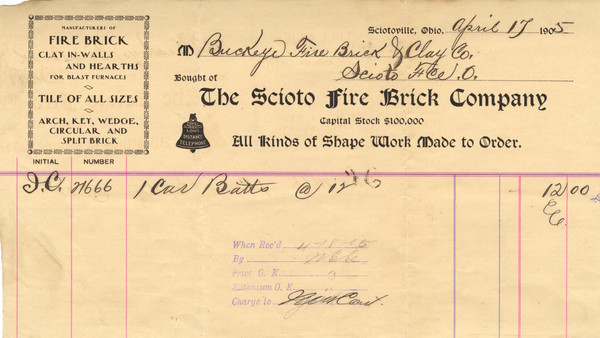 MANUFACTURERS OF
FIRE BRICK
CLAY IN-WALLS
AND HEARTHS
FOR BLAST FURNACES
TILE OF ALL SIZES
ARCH, KEY, WEDGE,
CIRCULAR AND
SPLIT BRICK
Sciotoville, Ohio, April 17 1905
M Buckeye Fire Brick & Clay Co.
Scioto Fce. O.
Bought of
The Scioto Fire Brick Company
Capital Stock $100,000
LONG DISTANCE TELEPHONE
All Kinds of Shape Work Made to Order.
INITIAL NUMBER
I.C. 27666 1 Car Batts @ 12 00
When Rec'd 4-18-05
By
Price O. K.
Extension O. K.
Charge to